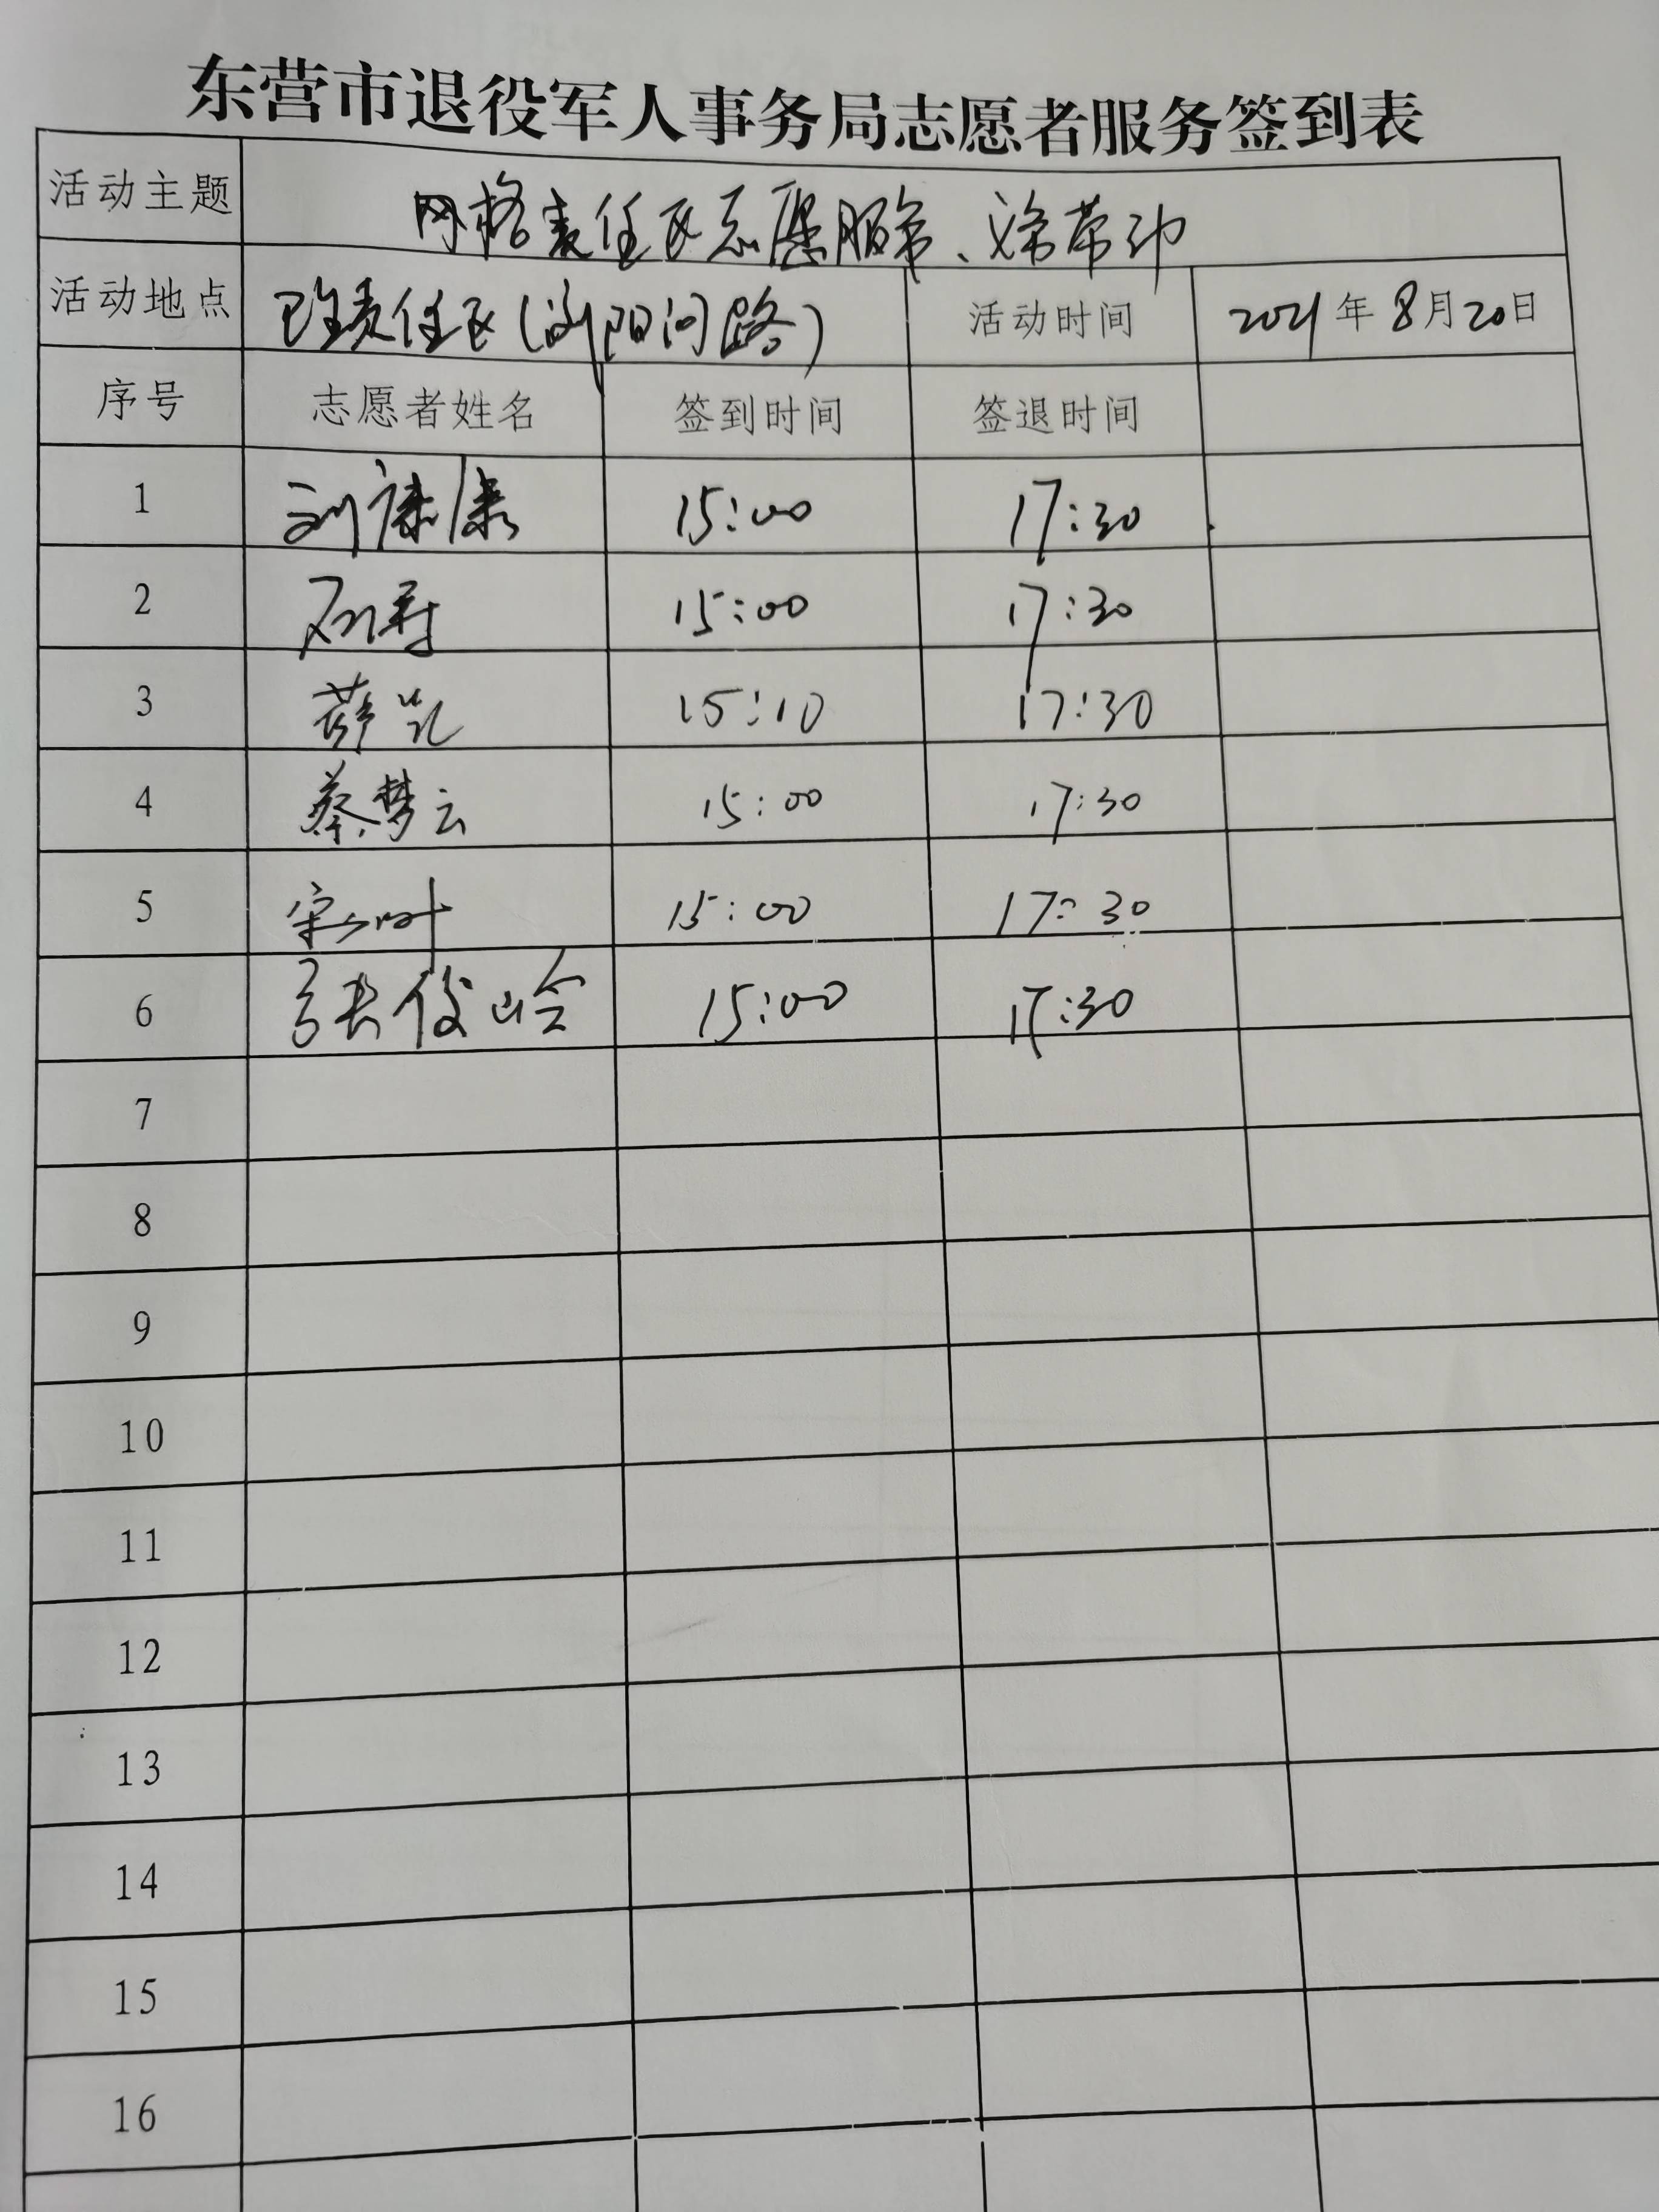 东营市退役军人事务局志愿者服务签到表
活动主题 网格责任区志愿服务、
活动地点 责任区 活动时间 2021年8月20日
序号 志愿者姓名 签到时间 签退时间
1 刘康康 15:00 17:30
2 15:00 17:30
3 薛凯 15:10 17:30
4 蔡梦云 15:00 17:30
5 宋 15:00 17:30
6 张俊峪 15:00 17:30
7
8
9
10
11
12
13
14
15
16